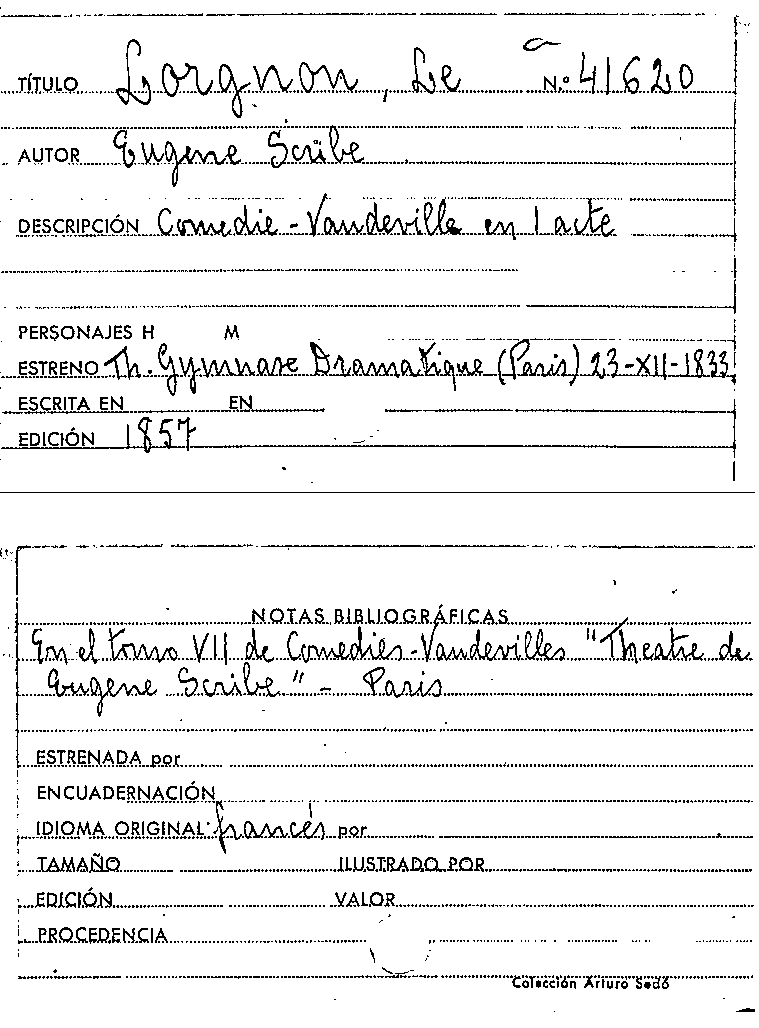 TÍTULO Lorgnon, Le N.º 41620
AUTOR Eugene Scribe
DESCRIPCIÓN Comedie-Vaudeville en 1 acte
PERSONAJES H M
ESTRENO Th. Gymnase Dramatique (Paris) 23-XII-1833
ESCRITA EN EN
EDICIÓN 1857
NOTAS BIBLIOGRÁFICAS
En el tomo VII de Comedies-Vaudevilles "Theatre de
Eugene Scribe" - Paris
ESTRENADA por
ENCUADERNACIÓN
IDIOMA ORIGINAL francés por
TAMAÑO ILUSTRADO POR
EDICIÓN VALOR
PROCEDENCIA
Colección Arturo Sedó